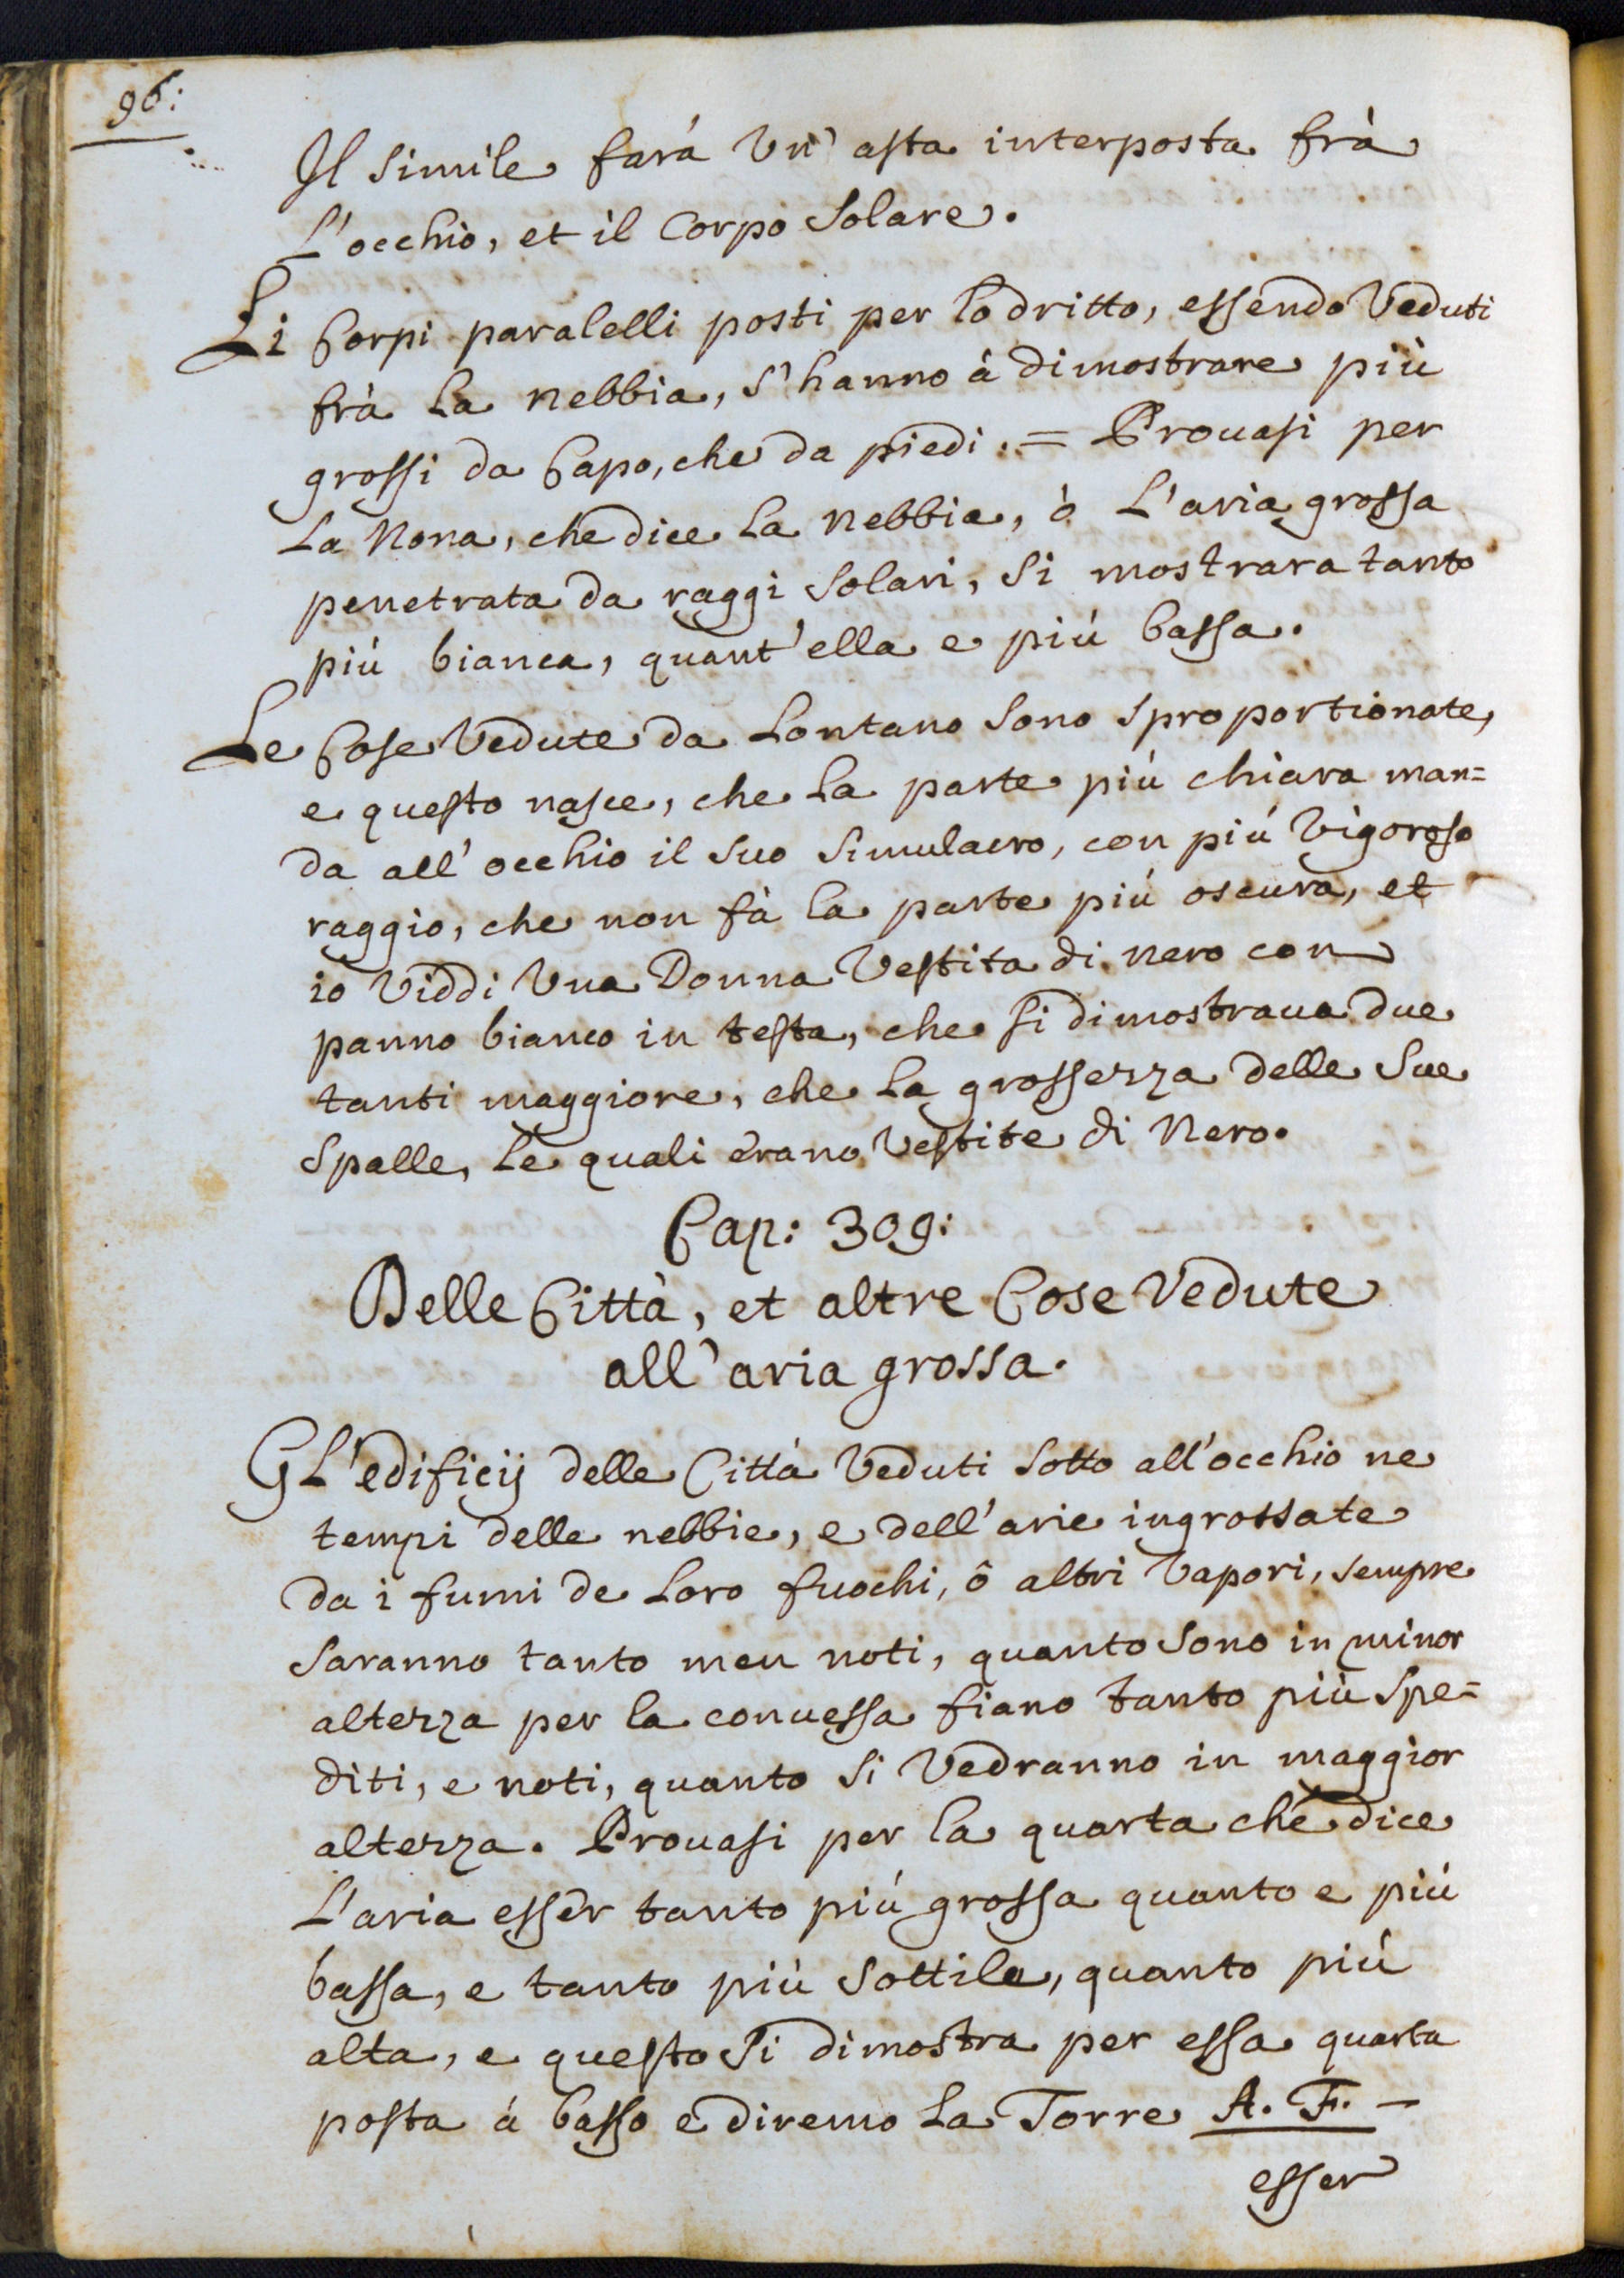 96:
Il simile farà Un' asta interposta frà
L'occhio, et il Corpo Solare.
Li Corpi paralelli posti per lo dritto, essendo Veduti
frà La nebbia, s'hanno à dimostrare più
grossi da Capo, che da piedi. = Prouasi per
La Nona, che dice La nebbia, ò L'aria grossa
penetrata da raggi Solari, Si mostrara tanto
più bianca, quant'ella e più bassa.
Le Cose Vedute da Lontano Sono Sproportionate,
e questo nasce, che La parte più chiara man=
da all'occhio il Suo Simulacro, con più Vigoroso
raggio, che non fà la parte più oscura, et
io Viddi Una Donna Vestita di nero con
panno bianco in testa, che Si dimostraua due
tanti maggiore, che La grossezza delle Sue
Spalle, Le quali erano Vestite di Nero.
Cap: 309:
Delle Città, et altre Cose Vedute
all'aria grossa.
GL'edificij delle Città Veduti Sotto all'occhio ne
tempi delle nebbie, e dell'arie ingrossate
da i fumi de Loro fuochi, ô altri Vapori, sempre
Saranno tanto men noti, quanto Sono in minor
altezza per la conuessa fiano tanto più Spe=
diti, e noti, quanto Si Vedranno in maggior
altezza. Prouasi per la quarta che dice
L'aria esser tanto più grossa quanto e più
bassa, e tanto più Sottile, quanto più
alta, e questo Si dimostra per essa quarta
posta à basso e diremo La Torre A. F. -
esser